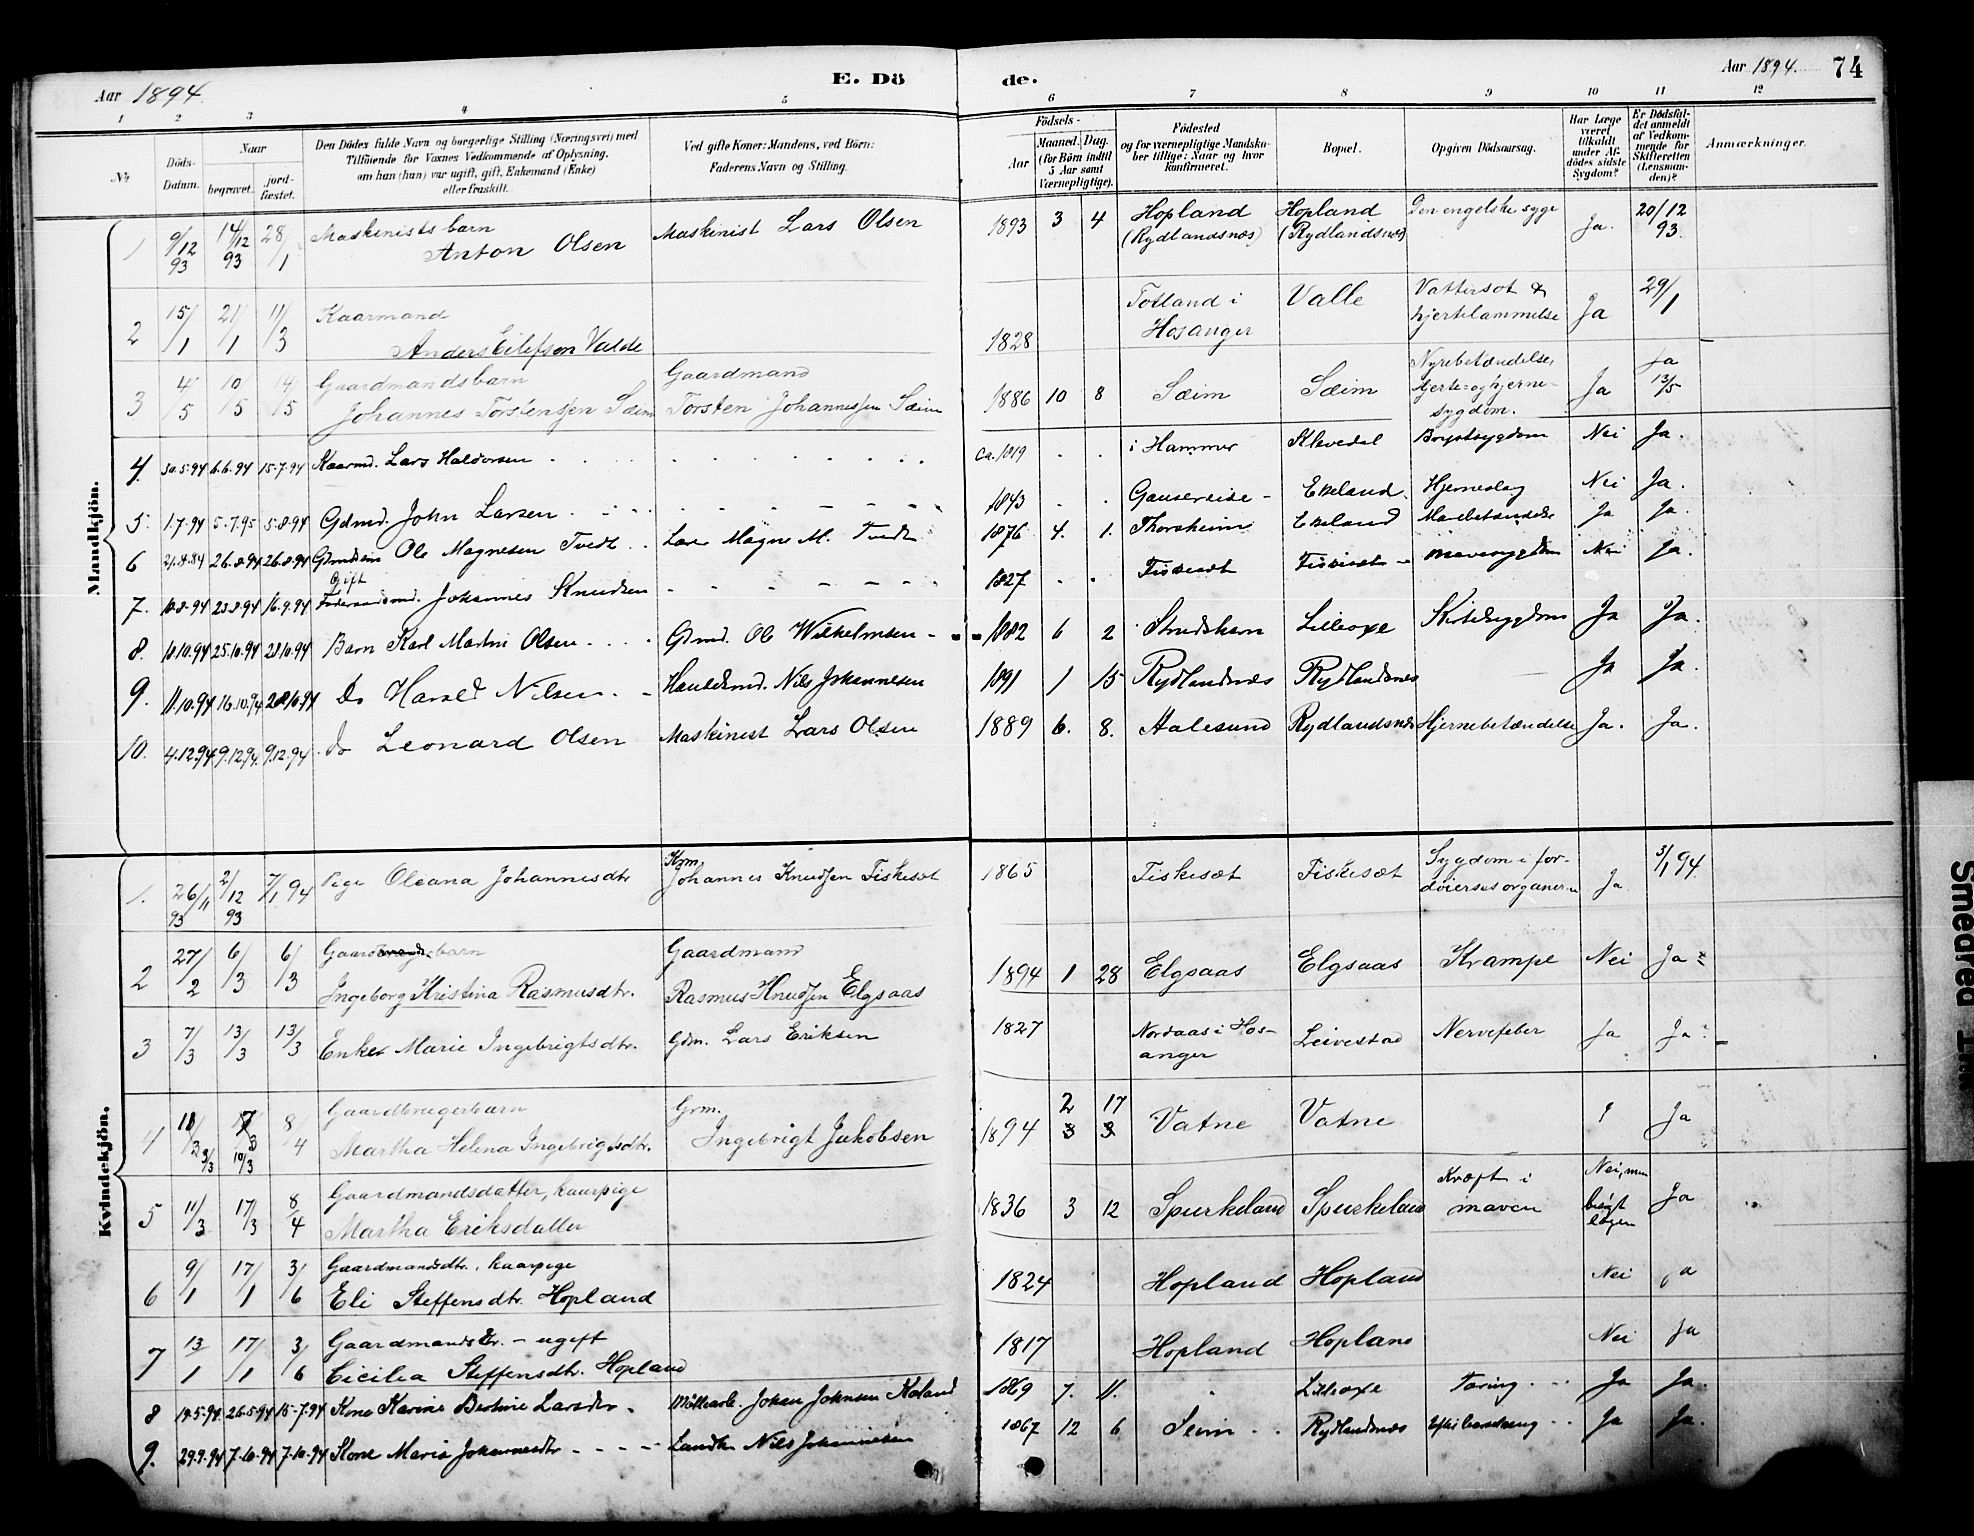 Aar 1894.
E. Döde.
Aar 1894. 74
1 2 3 4 5 6 7 8 9 10 11 12
No.
Döds-Datum.
Naar
begravet.
jord-fæstet.
Den Dödes fulde Navn og borgerlige Stilling (Næringsvei) med
Tilföiende for Voxnes Vedkommende af Oplysning,
om han (hun) var ugift, gift, Enkemand (Enke)
eller fraskilt.
Ved gifte Koner: Mandens, ved Börn:
Faderens Navn og Stilling.
Födsels-
Aar
Maaned. Dag.
(for Börn indtil
5 Aar samt
Værnepligtige).
Födested
og for værnepligtige Mandskaber tillige: Naar og hvor
konfirmeret.
Bopæl.
Opgiven Dödsaarsag.
Har Læge
været
tilkaldt
under Afdödes sidste
Sygdom?
Er Dödsfaldet anmeldt
af Vedkommende for
Skifteretten
(Lensmanden)?
Anmærkninger.
Mandkjön.
1 9/12 93 14/12 93 28/1 Maskinistsbarn Anton Olsen Maskinist Lars Olsen 1893 3 4 Hopland (Rydlandsnæs) Hopland (Rydlandsnæs) Den engelske syge Ja. 20/12 93.
2 15/1 21/1 11/3 Kaarmand Anders Eilefson Valde 1828 Totland i Hosanger Valle Vattersot & hjertelammelse Ja 29/1
3 4/5 10/5 14/5 Gaardmandsbarn Johannes Torstensen Sæim Gaardmand Torsten Johannessen Sæim 1886 10 8 Sæim Sæim Nyrebetændelse, hjerte- og hjerne-sygdom. Ja Ja 13/5
4. 30.5.94 6.6.94 15.7.94 Kaarmd. Lars Haldorsen ca. 1819 i Hammer Klevedal Brystsygdom Nei Ja.
5. 1.7.94 5.7.95 5.8.94 Gdmd. John Larsen 1843 Ekeland. Hjerneslag Nei Ja.
6 21.8.84 26.8.94 26.8.94 Ole Magnesen Tvedt Magne M. Tvedt 1876 4. 1. Thorsheim Ekeland Ja Ja.
7. 18.8.94 23.8.94 16.9.94 Gift Føderaadsmd. Johannes Knudsen 1827 Mavesygdom Nei Ja.
8. 18.10.94 25.10.94 28.10.94 Barn Karl Martin Olsen Gdmd. Ole Wilhelmsen 1882 6 2 Lilleoxe Ja Ja.
9. 11.10.94 16.10.94 28.10.94 Do Harald Nilsen Nils Johannesen 1891 1 15 Rydlandsnæs Rydlandsnæs Ja Ja.
10. 4.12.94 9.12.94. 9.12.94 do Leonard Olsen Maskinist Lars Olsen 1889 6. 8. Aalesund Rydlandsnæs Hjernebetændelse Ja. Ja.
Kvindekjön.
1. 26/11 93 2/12 93 7/1 94 Pige Oleana Johannesdtr Krm Johannes Knudsen Fiskesæt 1865 Fiskesæt Fiskesæt Sygdom i fordøielsesorganerne Ja 3/1 94
2 27/2 6/3 6/3 Gaardbarn Ingeborg Kristina Rasmusdtr. Gaardmand Rasmus Knudsen Elgsaas 1894 1 28 Elgsaas Elgsaas Krampe Nei Ja?
3 7/3 13/3 13/3 Enke Marie Ingebrigtsdtr. Gdm. Lars Eriksen 1827 Nordaas i Hosanger Leivestad Nervefeber Ja Ja?
4 3/3 10/3 8/4 Gaardbrugerbarn Martha Helena Ingebrigtsdtr. Grm. Ingebrigt Jakobsen 1894 2 17 3 3 Vatne Vatne ? Ja
5 11/3 17/3 8/4 Gaardmandsdatter, kaarpige Martha Eriksdatter 1836 3 12 Spurkeland Spurkeland Kræft i maven Nei, men brugt lægen Ja
6 9/1 17/1 3/6 Gaardmandsdtr., kaarpige Eli Steffensdtr. Hopland 1824 Hopland Hopland Nei Ja
7 13/1 17/1 3/6 Gaardmandsdtr. – ugift Cicilia Steffensdtr. Hopland 1817 Hopland Hopland Nei Ja
8 19.5.94 26.5.94 15.7.94 Kone Karine Bertine Larsdtr. Johan Johnsen 1869 7. 11. Lilleoxe Tæring Ja Ja.
9. 29.9.94 7.10.94 7.10.94 Kone Maria Johannesdtr Nils Johannesen 1867 12 6 Seim Rydlandsnæs Efter barselseng Ja Ja.
Smedred